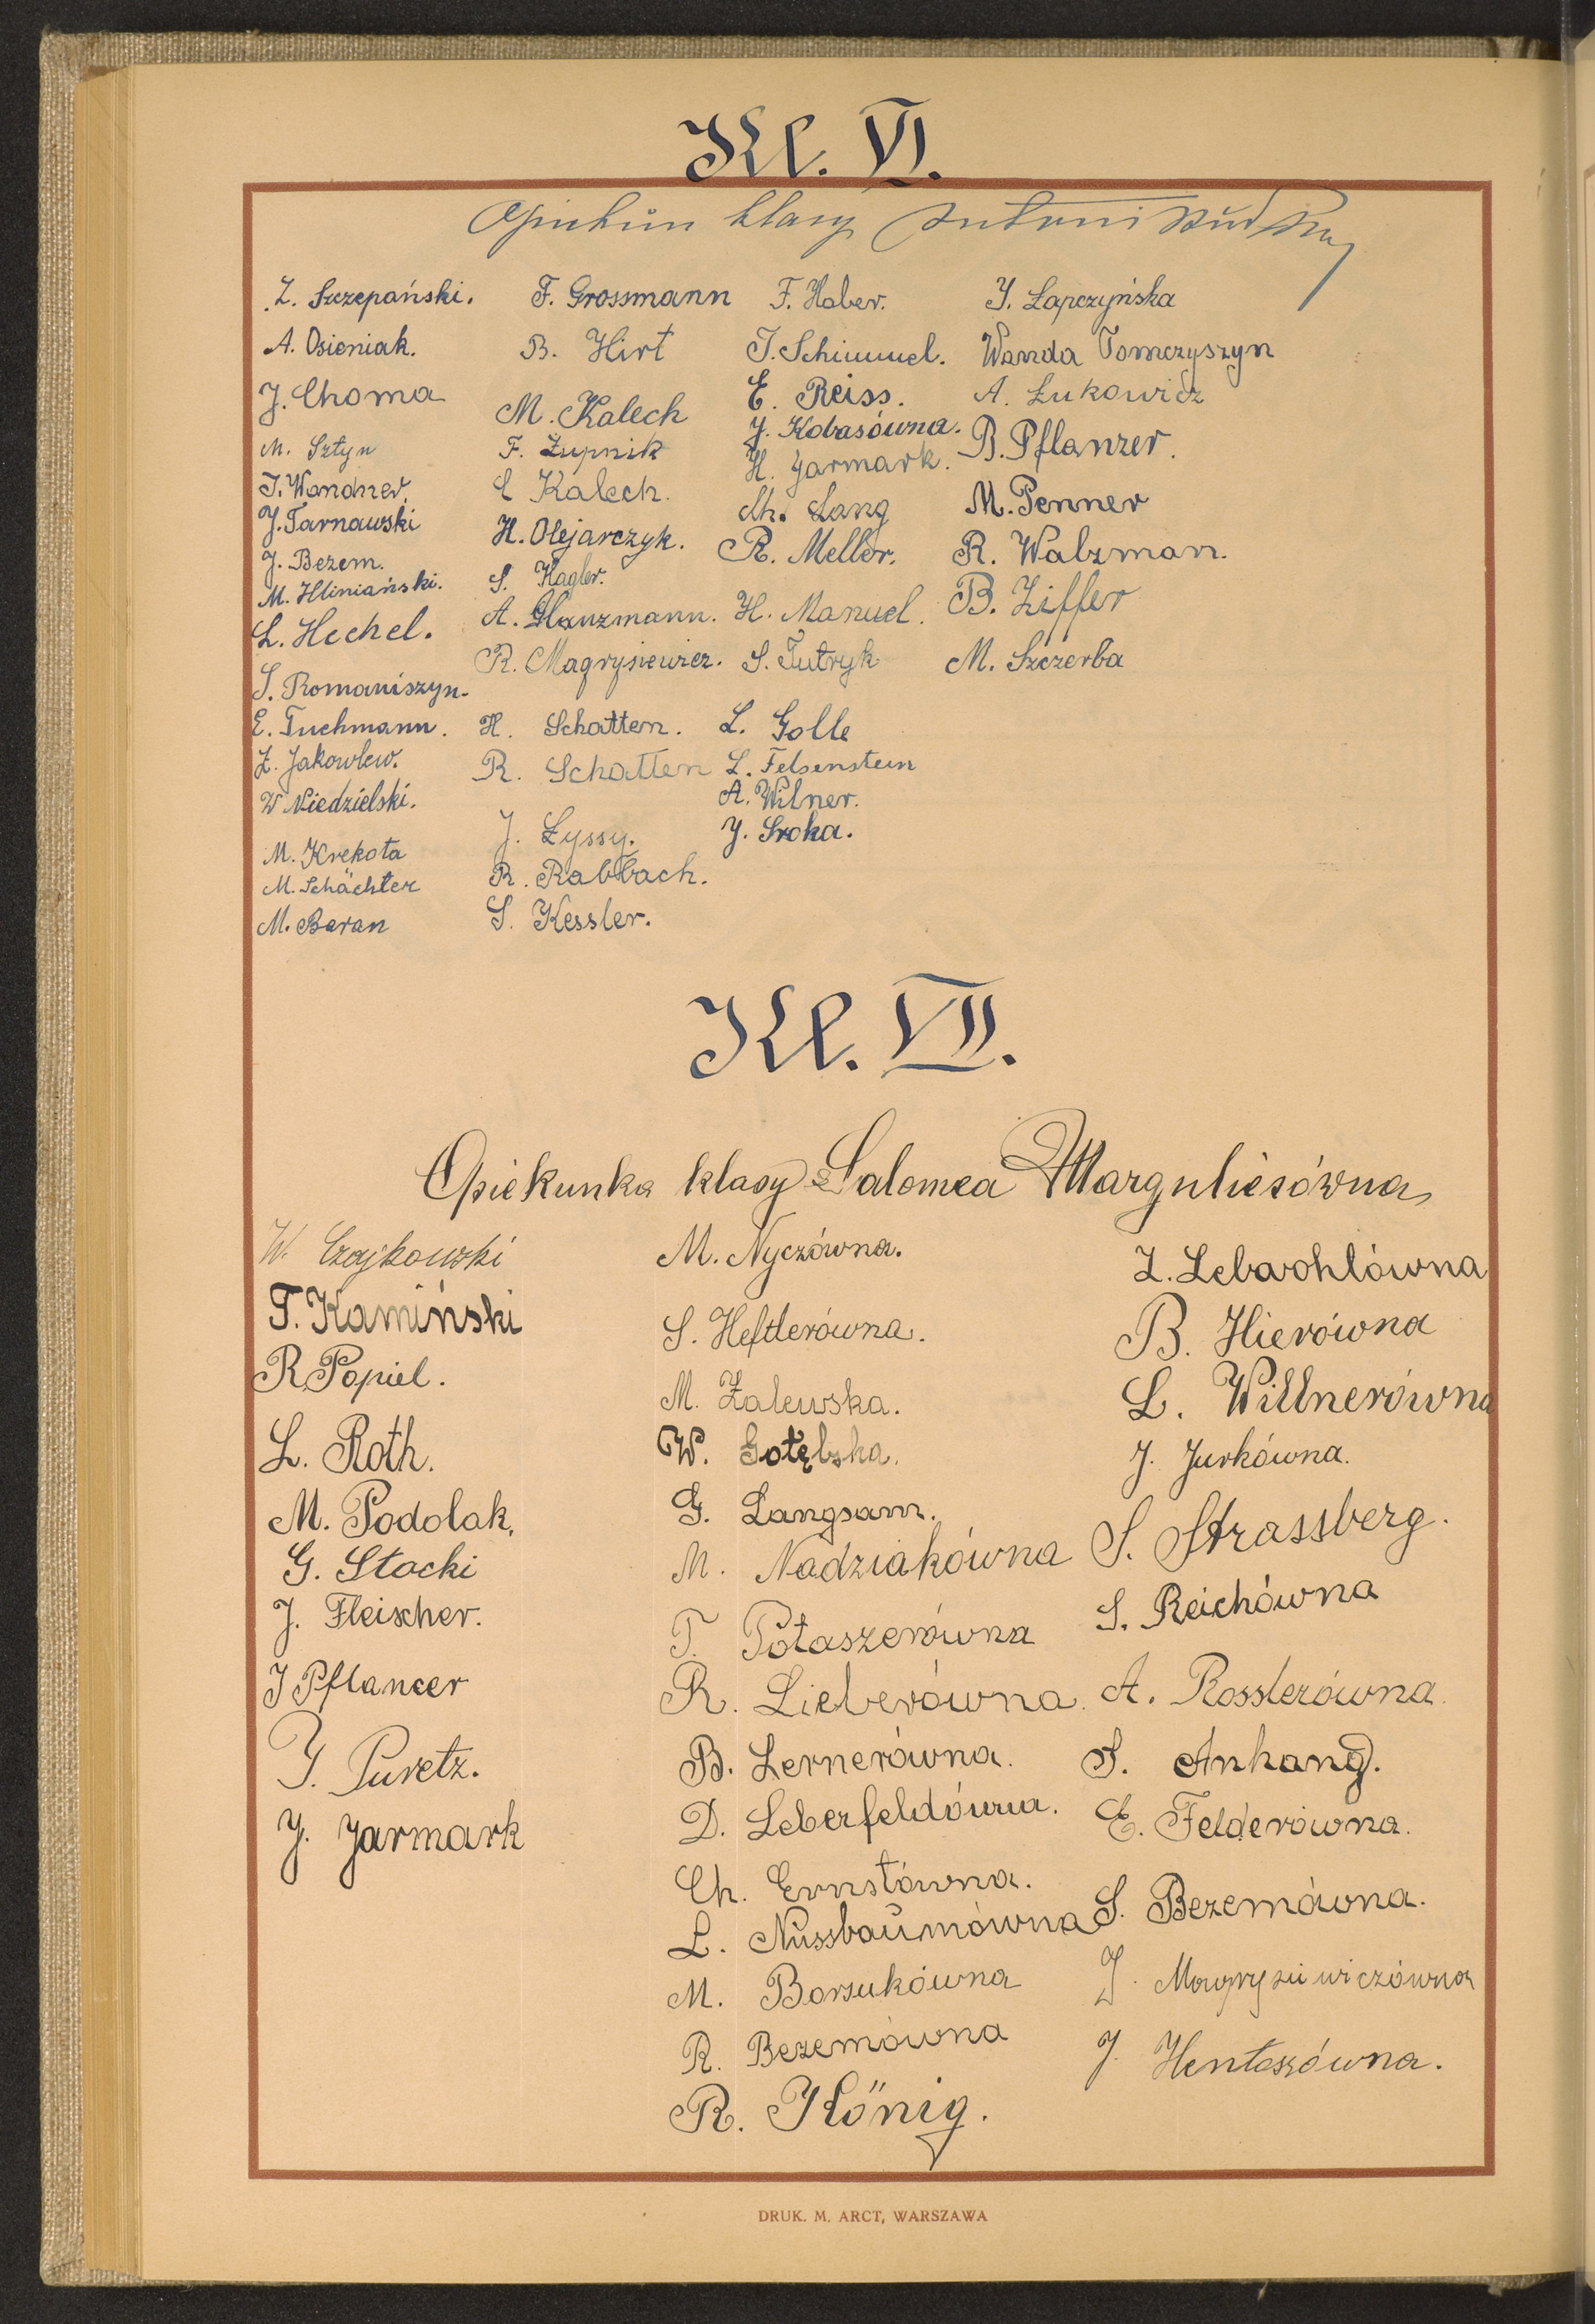 Kl. VI.
Opiekun klasy Antoni
Z. Szczepański. F. Grossmann F. Haber. J. Łapczyńska
A. Osieniak. B. Hirt J. Schimmel. Wanda Tomczyszyn
J. Choma M. Kalech E. Reiss. A. Łukowicz
M. Sztyn F. Żupnik J. Kobasówna. B. Pflanzer.
J. Wandner. E Kalech. H. Jarmark. M. Penner
J. Tarnawski H. Olejarczyk. Ch. Lang R. Walzman.
J. Bezem. S. Kagler. R. Meller. B. Ziffer
M. Hliniański. A. Glanzmann. H. Manuel. M. Szczerba
L. Hechel. R. Magrysiewicz. S. Tutryk
S. Romaniszyn.
E. Tuchmann. H. Schatten. L. Golle
Z. Jakowlew. R. Schatten L. Felsenstein
W Niedzielski. J. Łyssy. A. Wilner.
M. Krekota R. Rabbach. J. Sroka.
M. Schächter S. Kessler.
M. Baran
Kl. VII.
Opiekunka klasy Salomea Marguliesówna
W. Czajkowski M. Nyczówna. Z. Lebwohlówna
T. Kamiński S. Heftlerówna. B. Hierówna
R. Popiel. M. Zalewska. L. Willnerówna
L. Roth. W. Gołębska. J. Jurkówna.
M. Podolak, G. Langsam. S. Strassberg.
G. Stocki M. Nadziakówna S. Reichówna
J. Fleischer. T. Potaszerówna A. Rosslerówna.
J Pflancer R. Lieberówna. S. Anhang.
J. Puretz. B. Lernerówna. E. Felderówna.
J. Jarmark D. Leberfeldówna. S. Bezemówna.
Ch. Ernstówna. J. Magrysiewiczówna
L. Nussbaumówna J. Hentoszówna.
M. Borsukówna
R. Bezemówna
R. König.
DRUK. M. ARCT, WARSZAWA